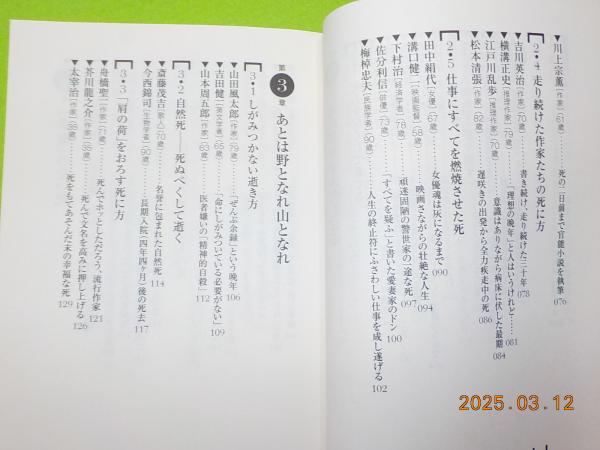 ▼川上宗薫(作家)(61歳)……死の二日前まで官能小説を執筆 076
2・4 走り続けた作家たちの死に方
▼吉川英治(作家)(70歳)……書き続け、走り続けた三十年 078
▼横溝正史(推理作家)(79歳)……「理想の晩年」と人はいうけれど…… 081
▼江戸川乱歩(推理作家)(70歳)……意識はありながら病床に伏した最期 084
▼松本清張(作家)(82歳)……遅咲きの出発から全力疾走中の死 086
2・5 仕事にすべてを燃焼させた死
▼田中絹代(女優)(67歳)……女優魂は灰になるまで 090
▼溝口健二(映画監督)(58歳)……映画さながらの壮絶な人生 094
▼下村治(経済学者)(78歳)……頑迷固陋の警世家の一途な死 097
▼佐分利信(俳優)(73歳)……「すべてを疑ふ」と書いた愛妻家のドン 100
▼梅棹忠夫(民族学者)(90歳)……人生の終止符にふさわしい仕事を成し遂げる 102
第3章 あとは野となれ山となれ
3・1 しがみつかない逝き方
▼山田風太郎(作家)(79歳)……「ぜんぶ余録」という晩年 106
▼吉田健一(英文学者)(65歳)……「命にしがみついている必要がない」 109
▼山本周五郎(作家)(63歳)……医者嫌いの「精神的自殺」 112
3・2 自然死——死ぬべくして逝く
▼斎藤茂吉(歌人)(70歳)……名誉に包まれた自然死 114
▼今西錦司(生物学者)(90歳)……長期入院(四年四ヶ月)後の死去 117
3・3 「肩の荷」をおろす死に方
▼舟橋聖一(作家)(71歳)……死んでホッとしただろう、流行作家 121
▼芥川龍之介(作家)(35歳)……死んで文名を高みに押し上げる 126
▼太宰治(作家)(38歳)……死をもてあそんだ末の幸福な死 129
2025.03.12